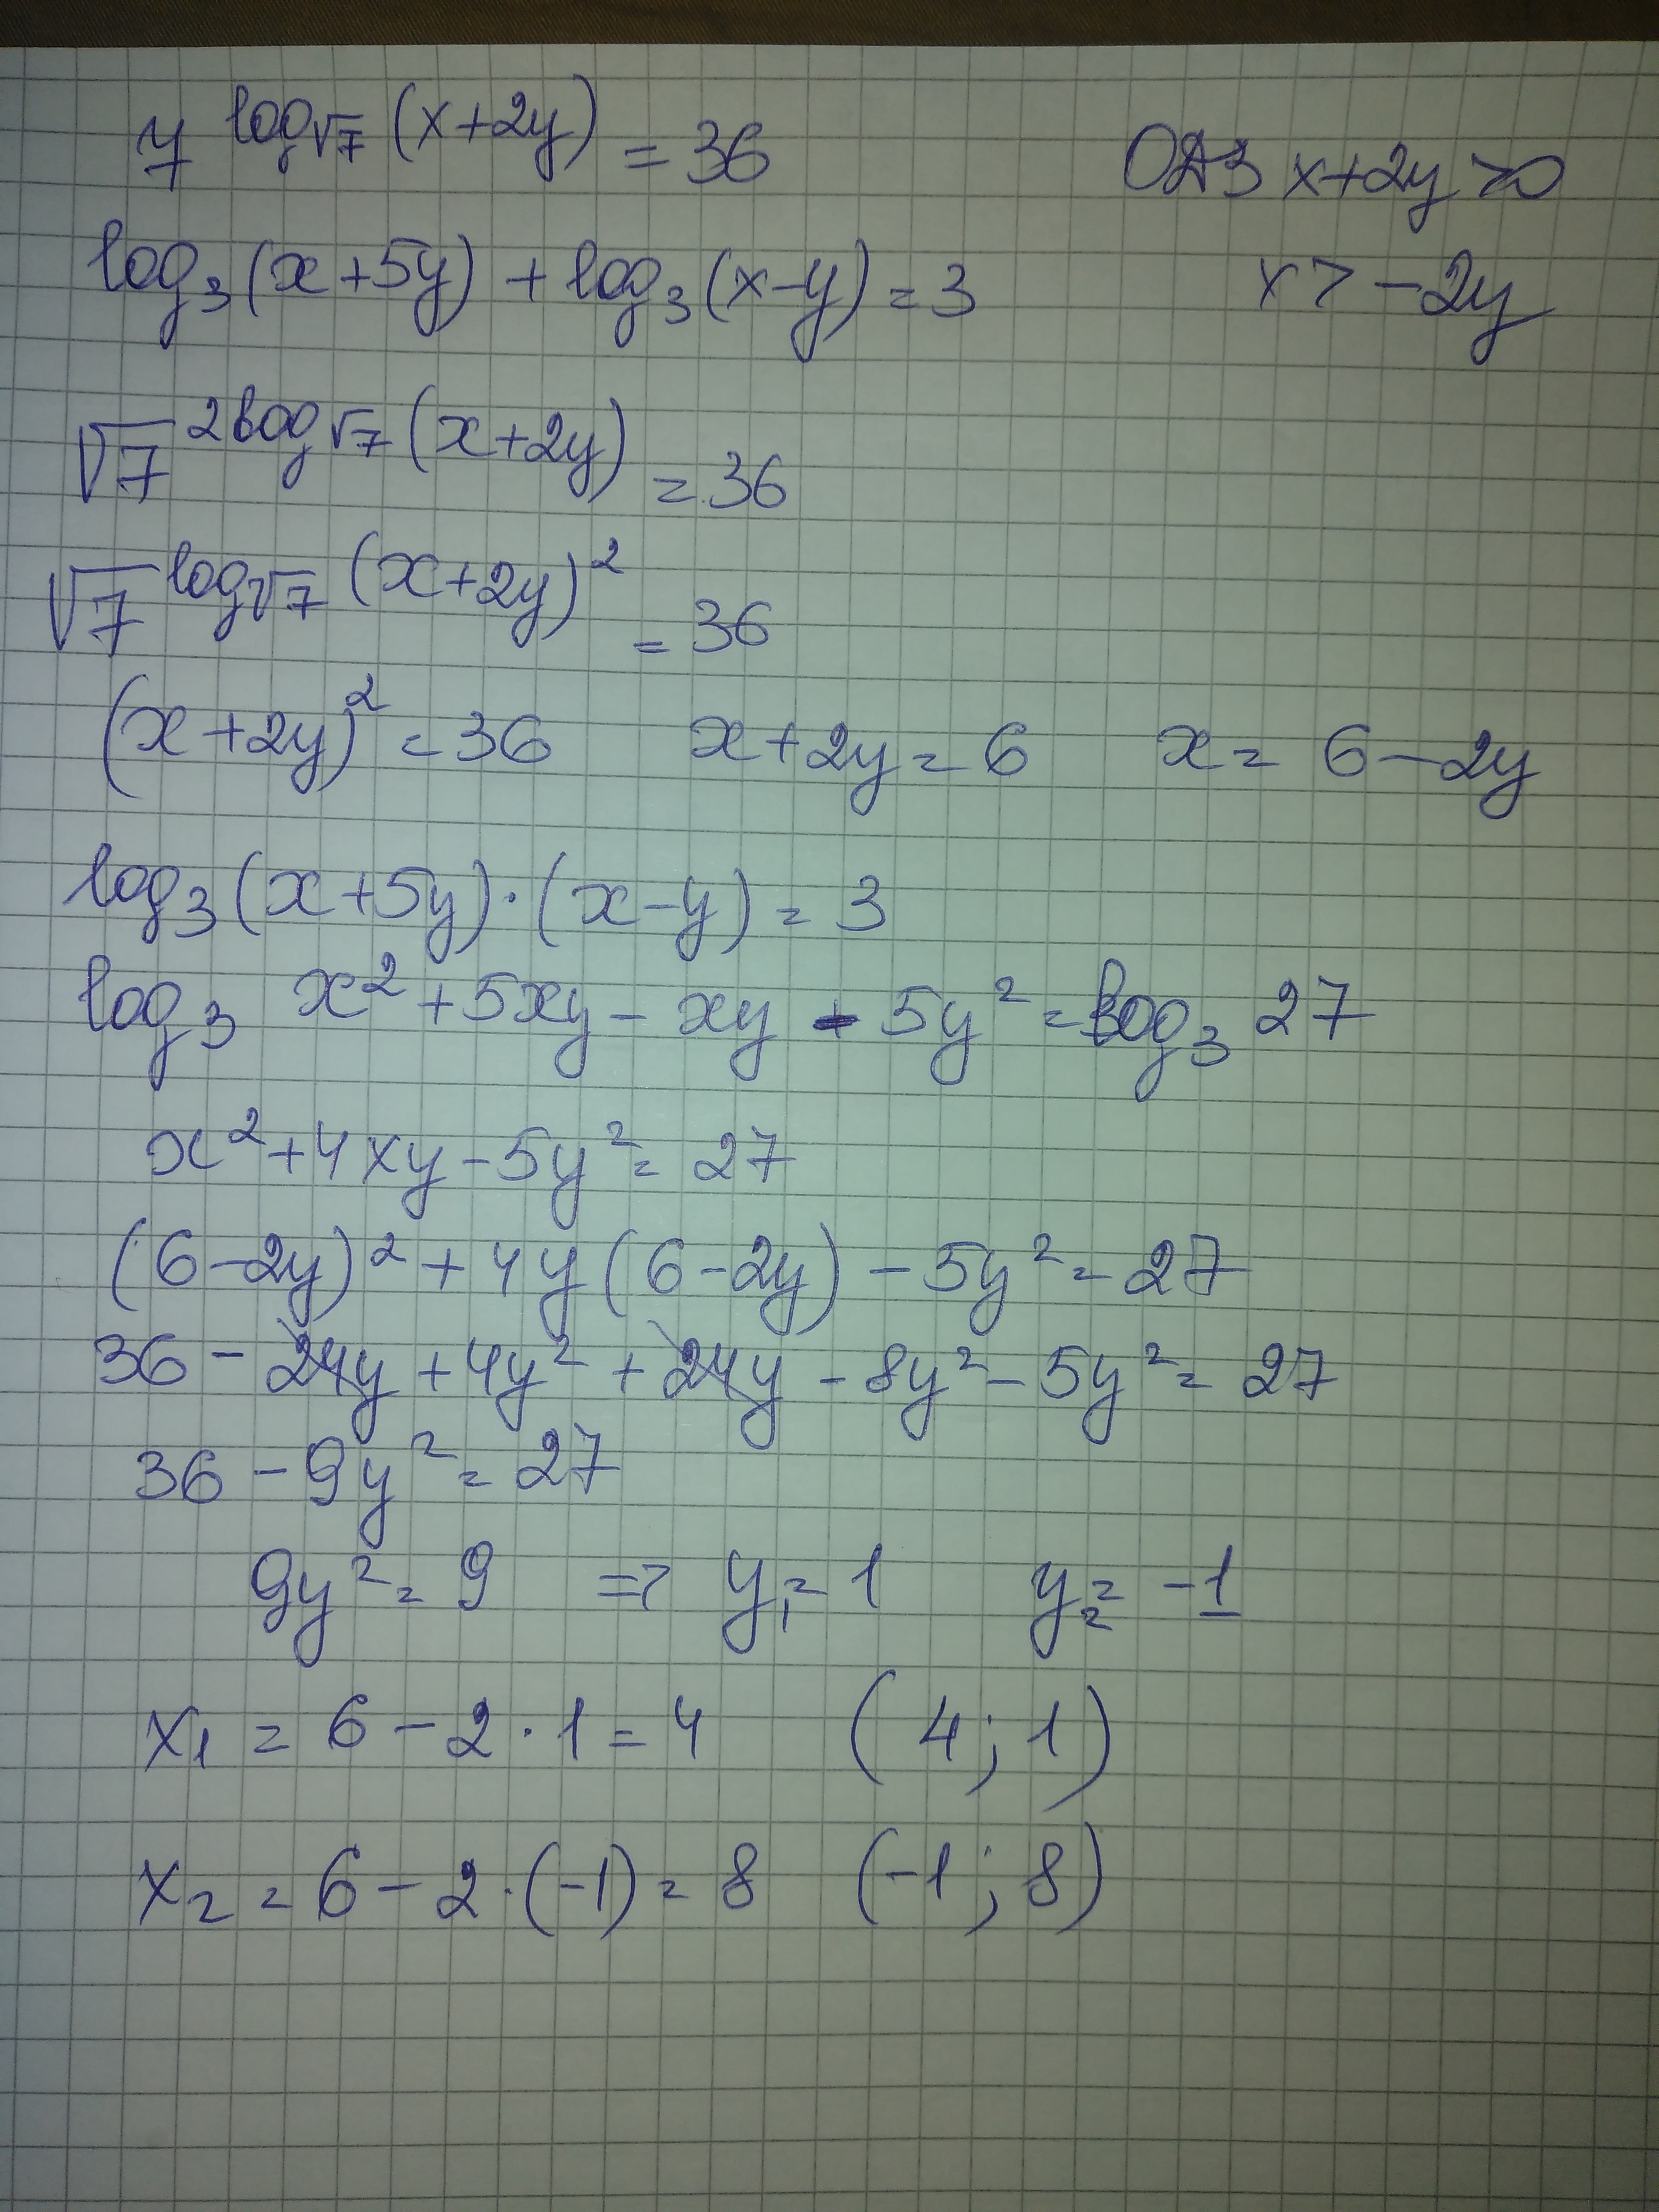 7^(log_√7 (x+2y)) = 36 ОДЗ x+2y>0
log₃(x+5y) + log₃(x-y) = 3 x > -2y
√7^(2log_√7 (x+2y)) = 36
√7^(log_√7 (x+2y)²) = 36
(x+2y)² = 36 x+2y = 6 x = 6-2y
log₃(x+5y)·(x-y) = 3
log₃ x²+5xy-xy-5y² = log₃ 27
x²+4xy-5y² = 27
(6-2y)²+4y(6-2y)-5y² = 27
36-24y+4y²+24y-8y²-5y² = 27
36-9y² = 27
9y² = 9 => y₁ = 1 y₂ = -1
x₁ = 6-2·1 = 4 (4; 1)
x₂ = 6-2·(-1) = 8 (-1; 8)